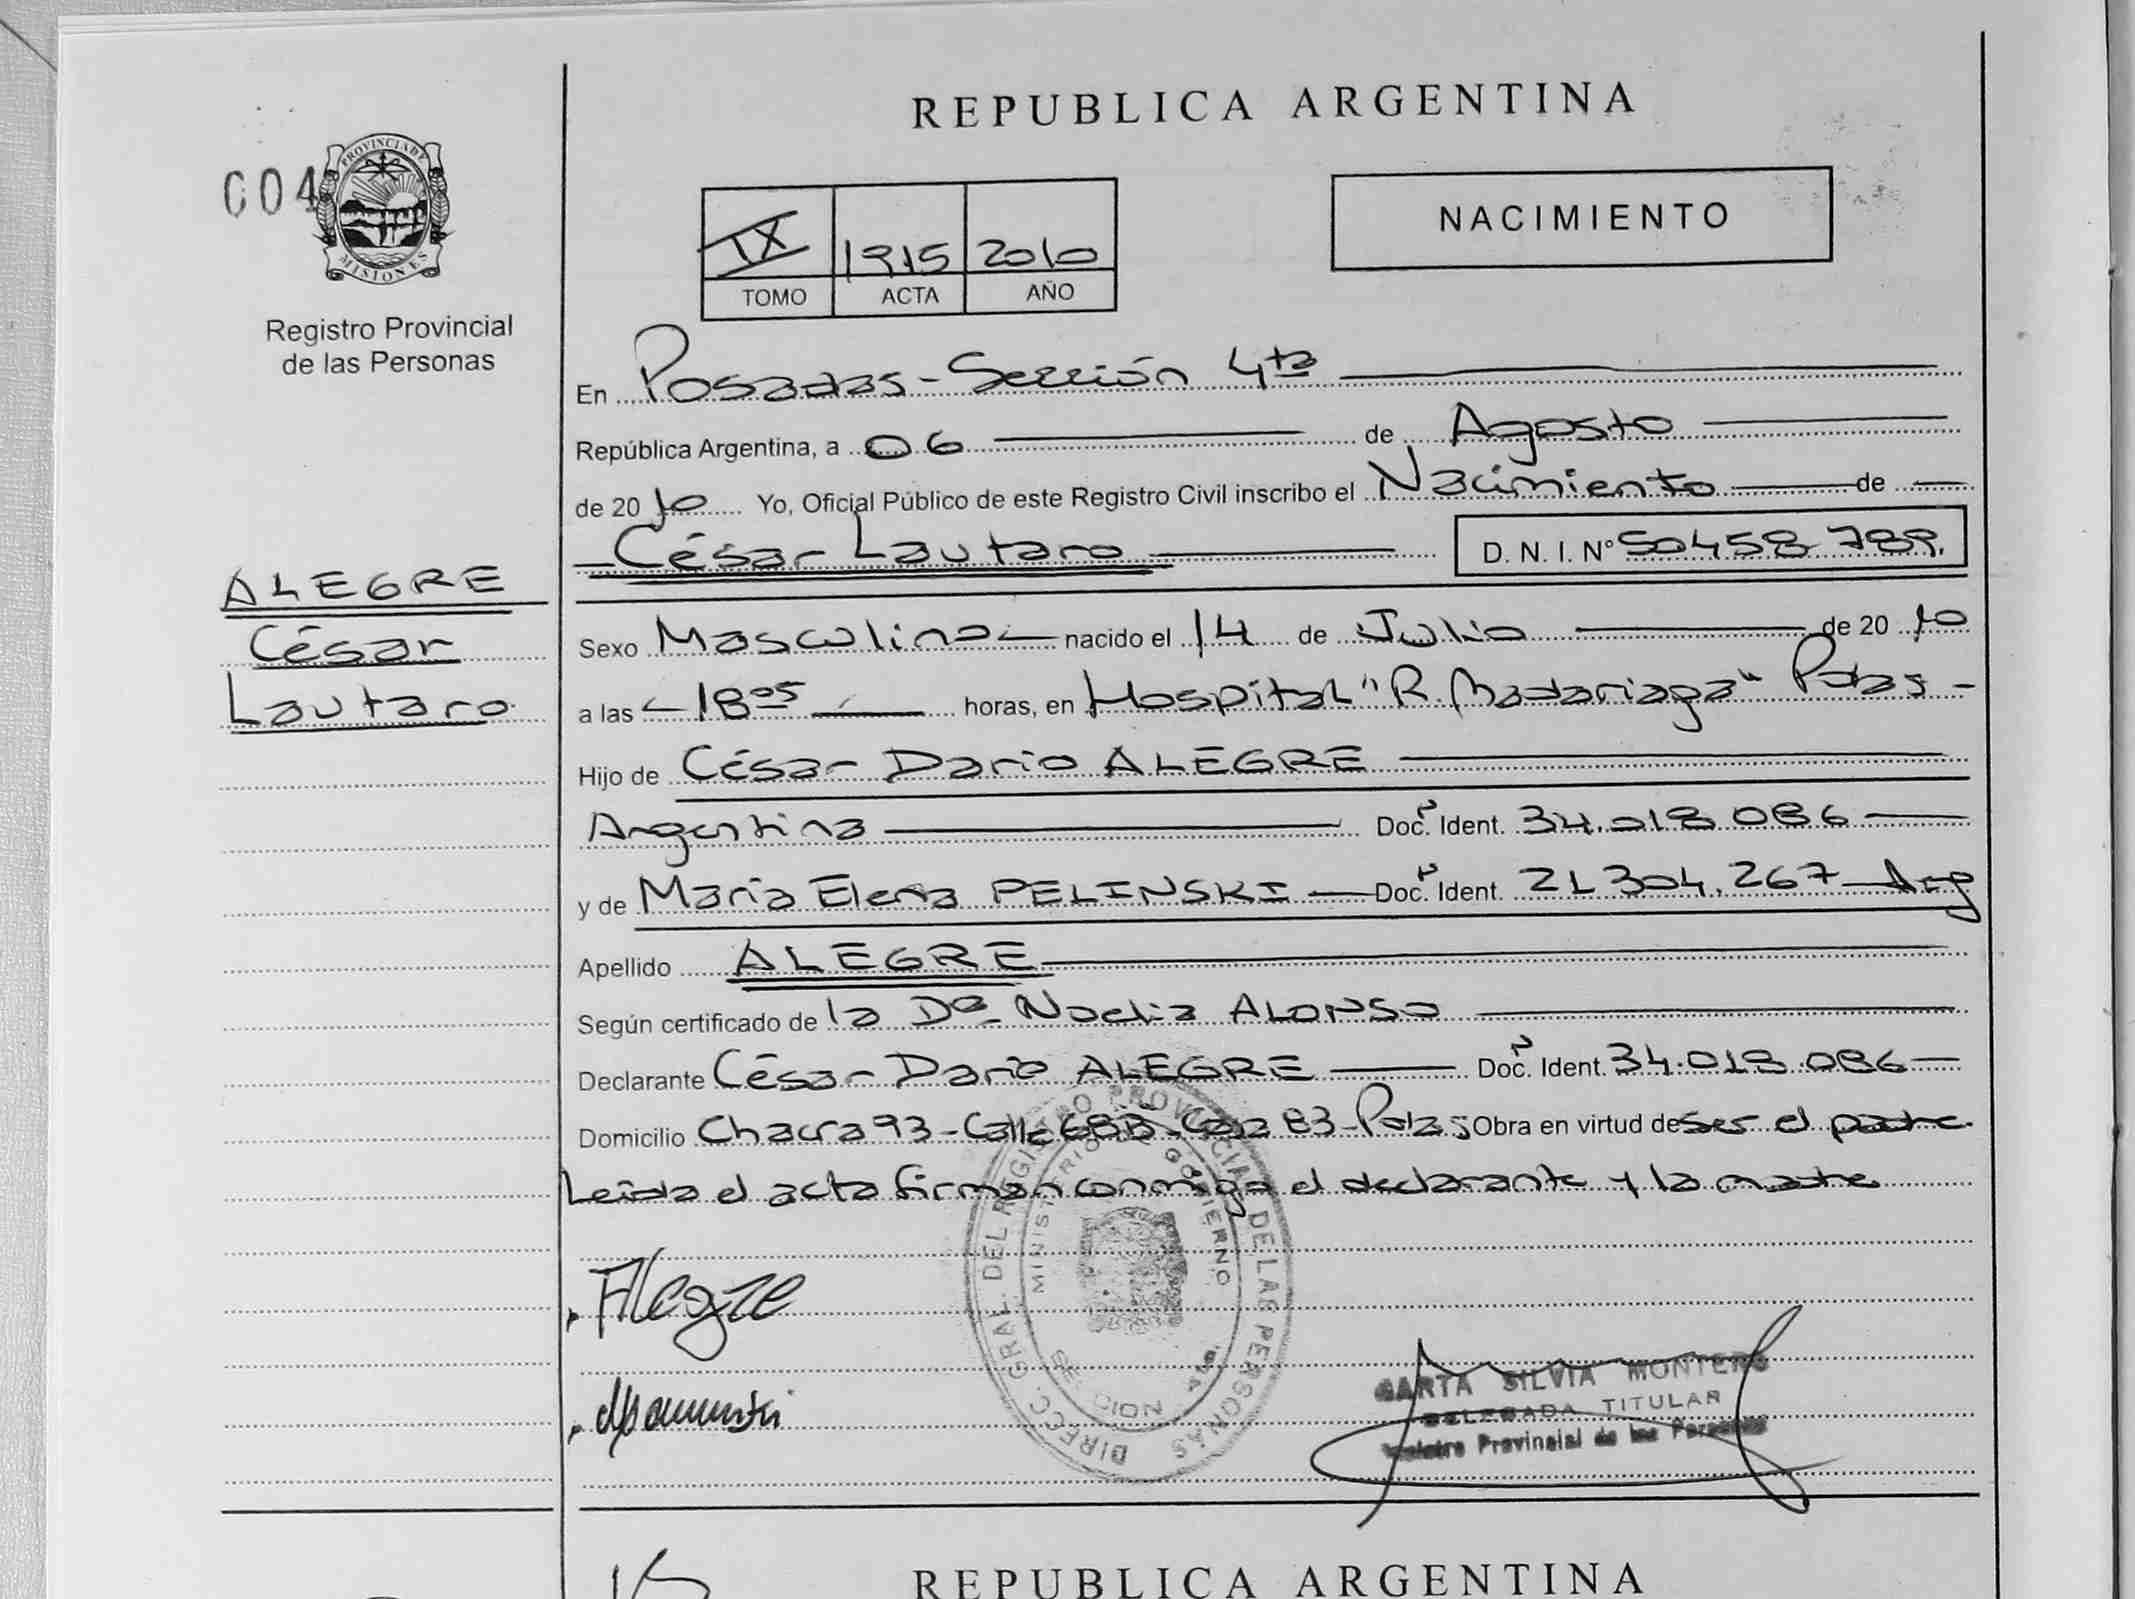 REPUBLICA ARGENTINA
004
PROVINCIA DE
MISIONES
Registro Provincial
de las Personas
NACIMIENTO
IX 1915 2010
TOMO ACTA AÑO
En Posadas - Sección 4ta
República Argentina, a 06 de Agosto
de 2010 Yo, Oficial Público de este Registro Civil inscribo el Nacimiento de
César Lautaro D. N. I. N° 50458789.
ALEGRE
César
Lautaro
Sexo Masculino nacido el 14 de Julio de 2010
a las 18 05 horas, en Hospital "R. Madariaga" Pdas -
Hijo de César Dario ALEGRE
Argentina Doc. Ident. 34.018.086
y de María Elena PELINSKI Doc. Ident. 21.304.267 Arg
Apellido ALEGRE
Según certificado de la Dra. Noelia ALONSO
Declarante César Dario ALEGRE Doc. Ident. 34.018.086
Domicilio Chacra 93 - Calle Casa 83 - Pdas; Obra en virtud de ser el padre.
Leída el acta firman conmigo el declarante y la madre
Alegre
DIRECC GRAL. DEL REGISTRO PROVINCIAL DE LAS PERSONAS
MINISTERIO GOBIERNO
SECCION 4ta.
SILVIA MONTERO
DELEGADA TITULAR
Registro Provincial de las Personas
REPUBLICA ARGENTINA